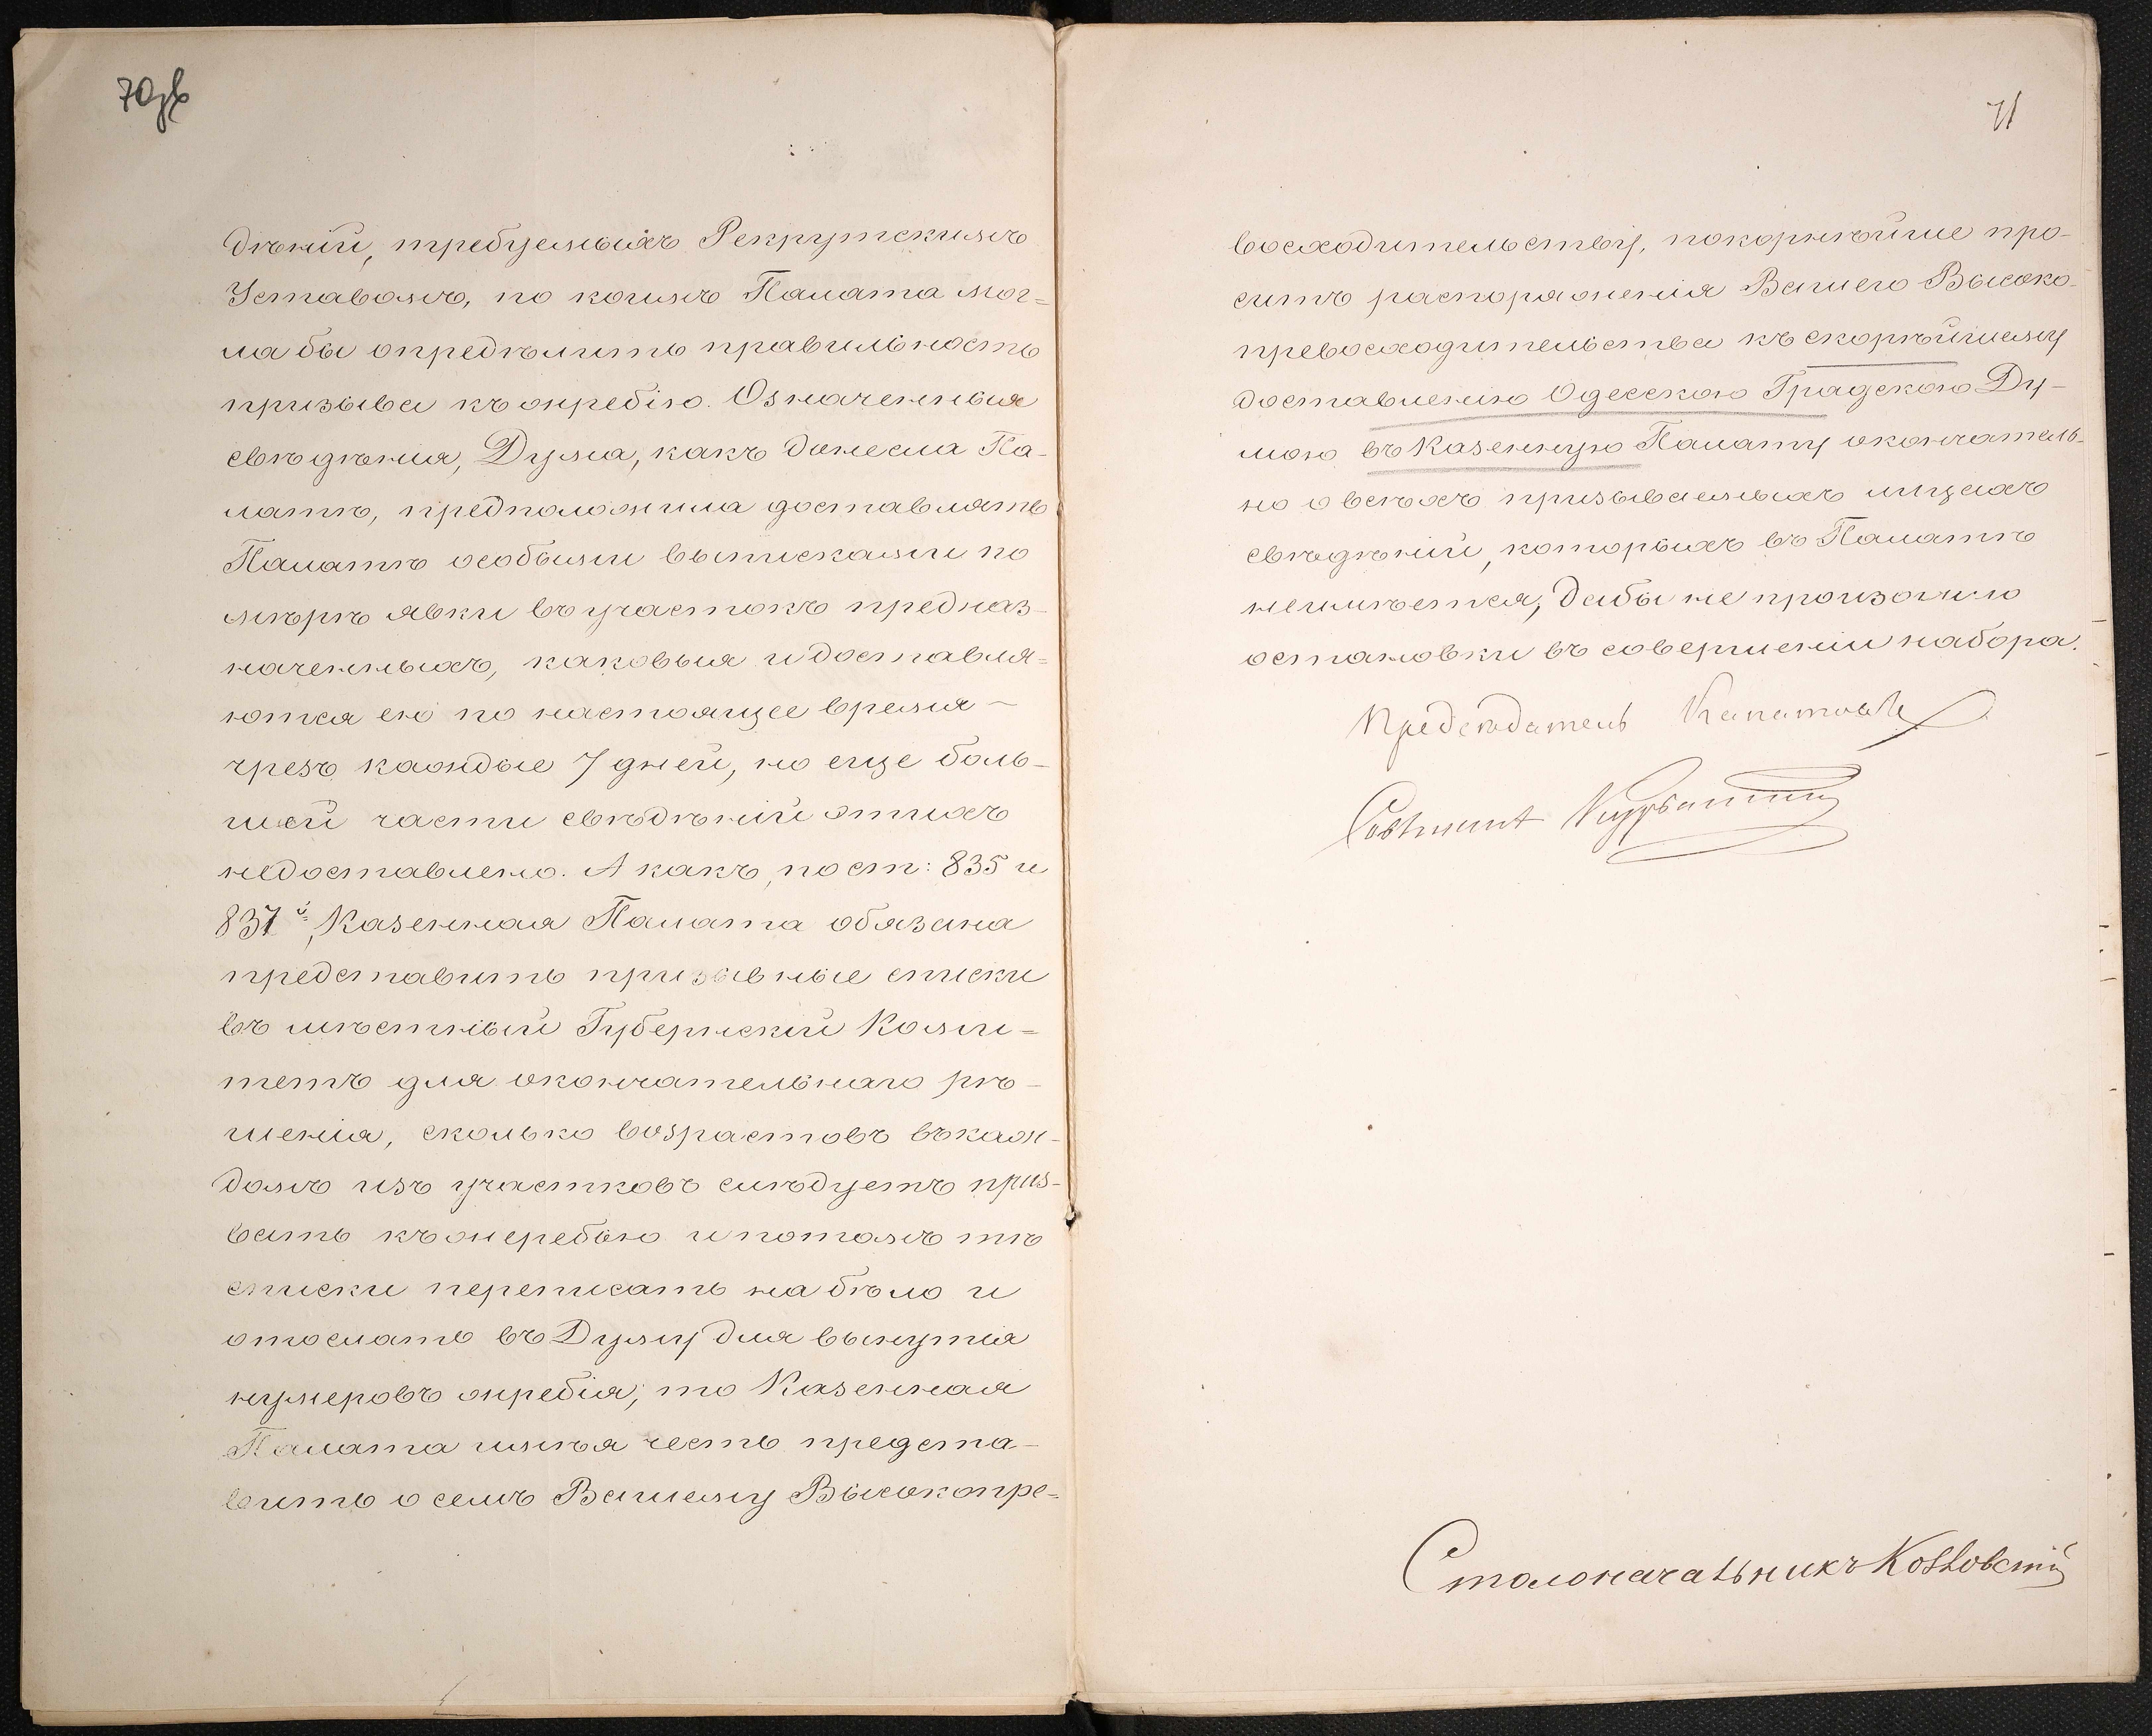 70 зв
дѣній, требуемыхъ Рекрутскимъ
Уставомъ, по коимъ Палата мог=
ла бы опредѣлить правильность
призыва къ жребію. Означенныя
свѣдѣнія, Дума, какъ донесла Па-
латѣ, предположила доставлять
Палатѣ особыми выписками по
мѣрѣ явки въ участокъ предназ-
наченныхъ, каковыя и доставля=
ются ею по настоящее время –
чрезъ каждые 7 дней, но еще боль-
шей части свѣдѣній этихъ
недоставлено. А какъ, по ст: 835 и
837й, Казенная Палата обязана
представить призывные списки
въ мѣстный Губернскій Коми=
тетъ для окончательнаго рѣ-
шенія, сколько возрастовъ въ каж-
домъ изъ участковъ слѣдуетъ приз-
вать къ жеребью и потомъ тѣ
списки переписать на бѣло и
отослать въ Думу для вынутія
нумеровъ жребія; то Казенная
Палата имѣя честь предста-
вить о семъ Вашему Высокопре=
71
восходительству, покорнѣйше про-
ситъ распоряженія Вашего Высоко-
превосходительства къ скорѣйшему
доставленію Одесскою Градскою Ду-
мою въ Казенную Палату окончатель-
но о всѣхъ призываемыхъ лицахъ
свѣдѣній, которыхъ въ Палатѣ
неимѣется, дабы не произошло
остановки въ совершеніи набора.
Предсѣдатель
Совѣтникъ
Столоначальникъ Козловскій